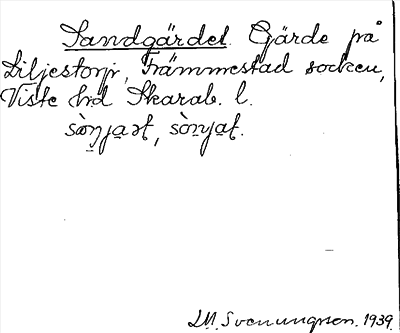 Sandgärdet. Gärde på
Liljestorp, Främmestad socken,
Viste hd Skarab. l.
sòn̠ja̠ət, sòn̠ya̠t.
L.M. Svenungsson. 1939.